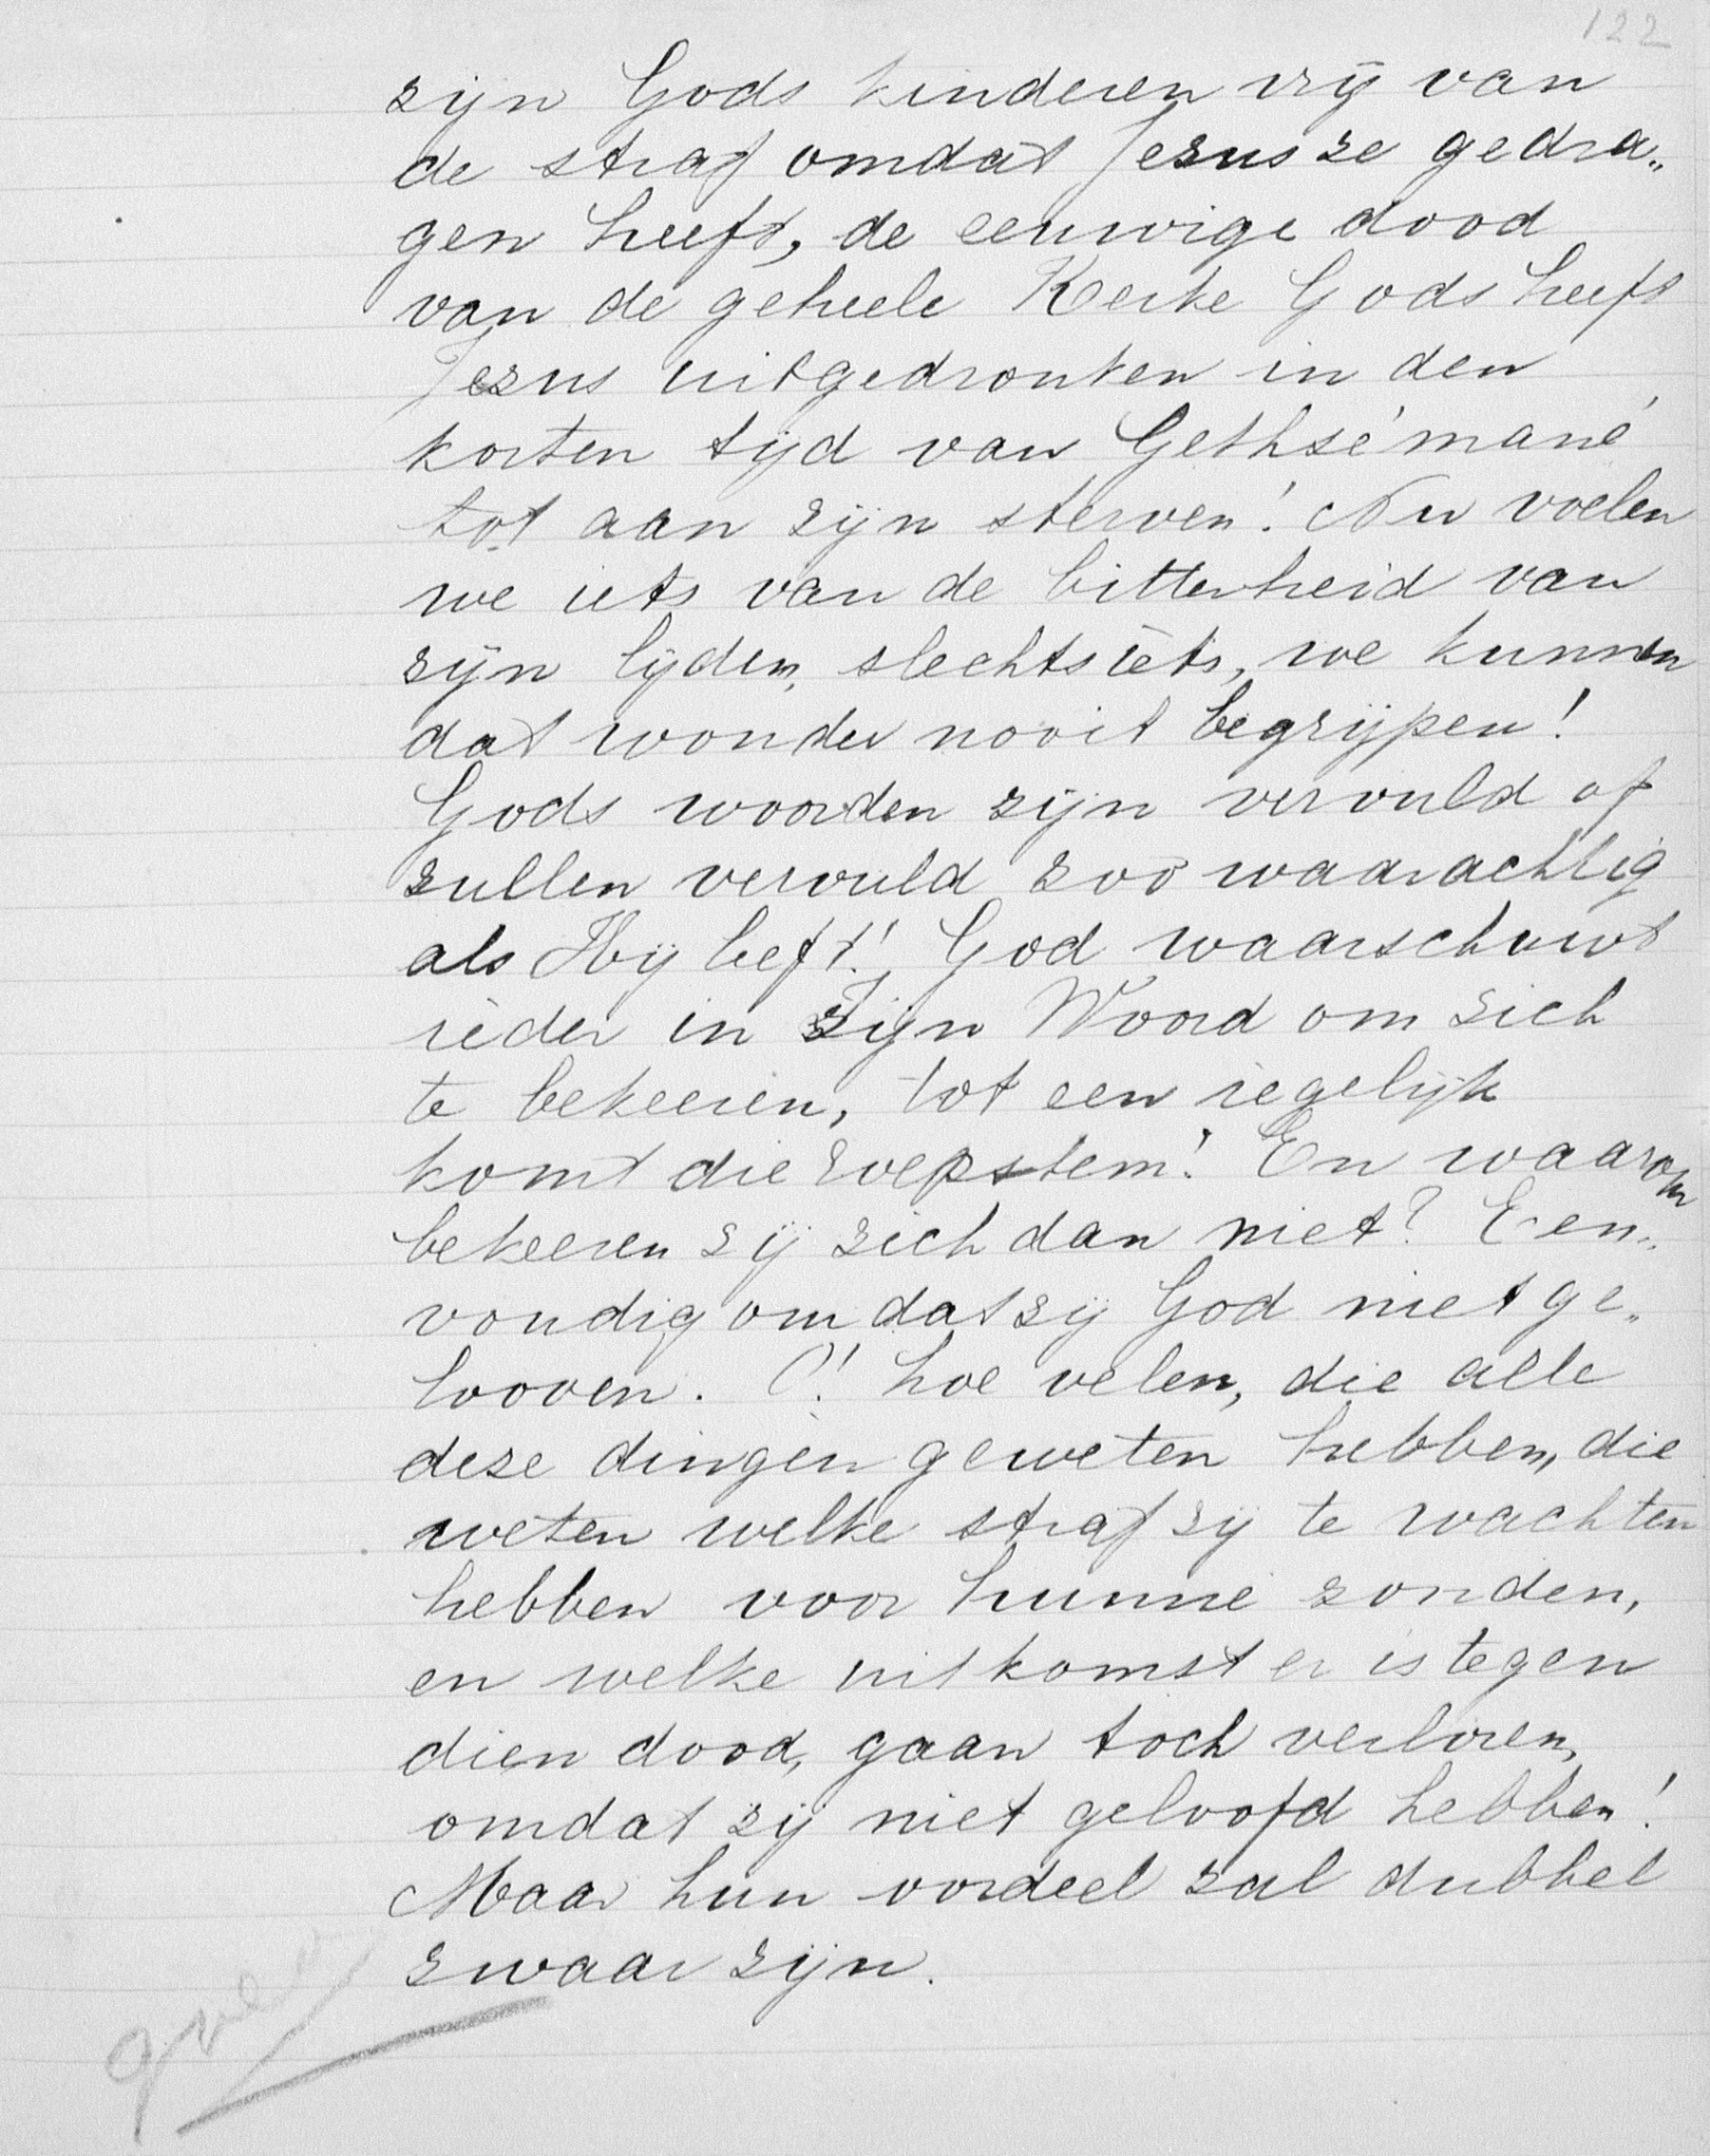 122
zijn Gods kinderen vrij van
de straf omdat Jezus ze gedra„
gen heeft, de eeuwige dood
van de geheele Kerke Gods heeft
Jezus uitgedronken in den
korten tijd van Gethsémané
tot aan zijn sterven! Nu voelen
we iets van de bitterheid van
zijn lijden, slechts iets, we kunnen
dat wonder nooit begrijpen!
Gods woorden zijn vervuld of
zullen vervuld zoo waarachtig
als Hij leeft! God waarschuwt
ieder in Zijn Woord om zich
te bekeeren, tot een iegelijk
komt die roepstem! En waarom
bekeeren zij zich dan niet? Een„
voudig omdat zij God niet ge„
looven. O! hoe velen, die alle
deze dingen geweten hebben, die
weten welke straf zij te wachten
hebben voor hunne zonden,
en welke uitkomst er is tegen
dien dood, gaan toch verloren,
omdat zij niet geloofd hebben!
Maar hun oordeel zal dubbel
zwaar zijn.